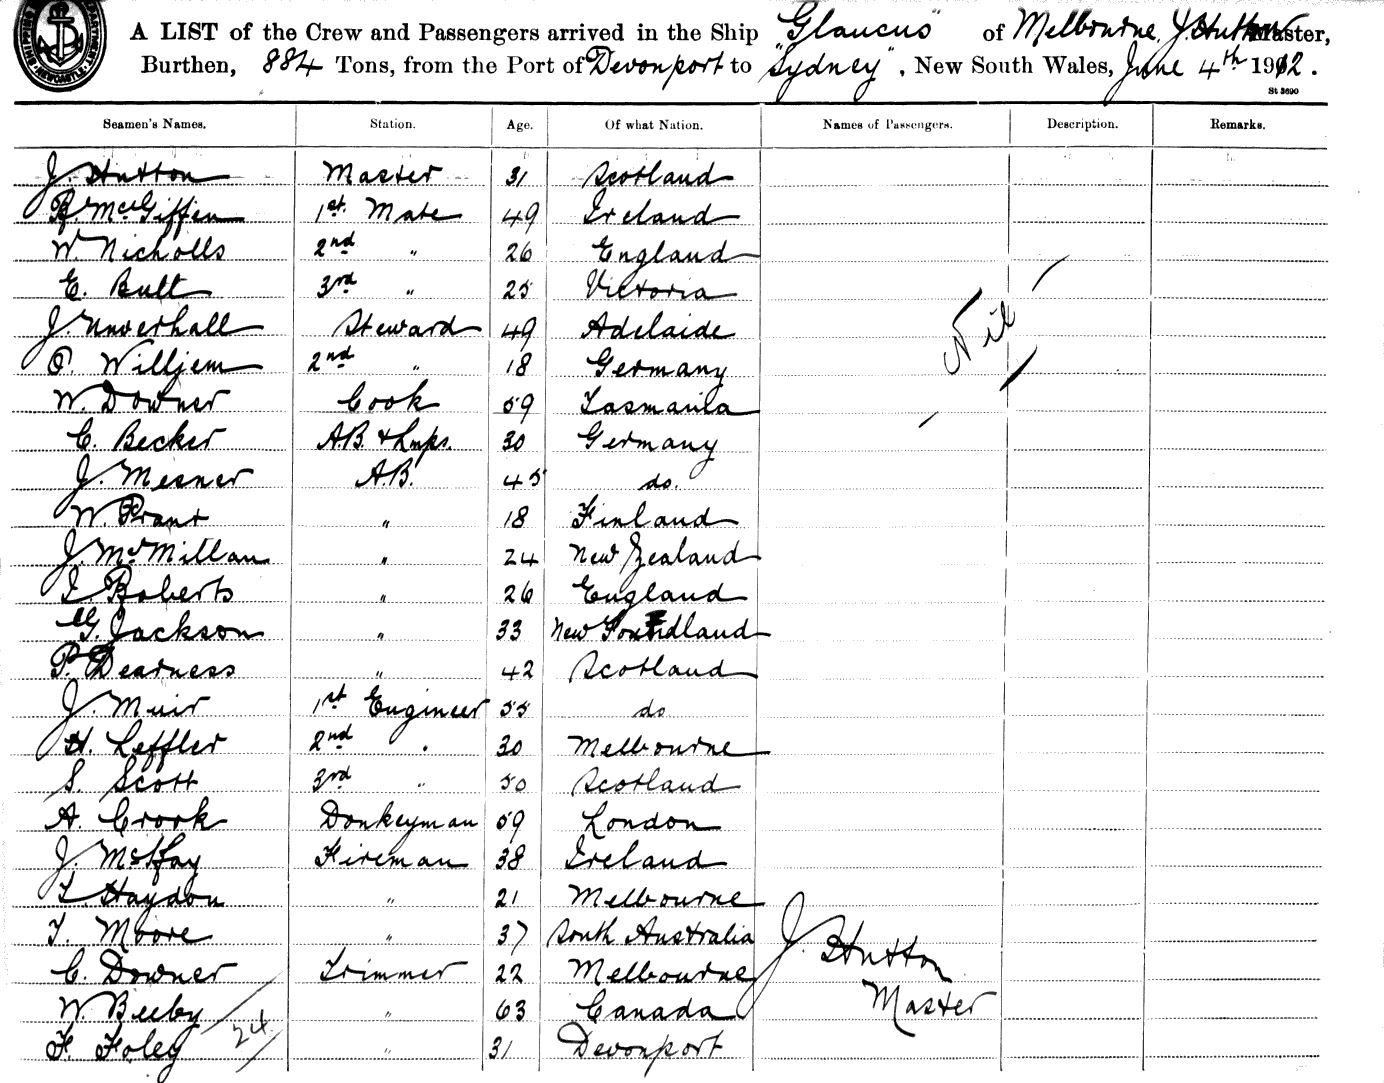 A LIST of the Crew and Passengers arrived in the Ship "Glaucus" of Melbourne, J. Hutton Master,
Burthen, 884 Tons, from the Port of Devonport to "Sydney", New South Wales, June 4th 1912.
St 3690
Seamen's Names. Station. Age. Of what Nation. Names of Passengers. Description. Remarks.
J. Hutton Master 31 Scotland
R McGiffen 1st Mate 49 Ireland
W. Nicholls 2nd " 26 England
E. Bull 3rd " 25 Victoria
J. Unverhall Steward 49 Adelaide
Nil
O. Willjem 2nd " 18 Germany
W. Downer Cook 59 Tasmania
C. Becker A.B. & Lmps. 30 Germany
J. Mesner A.B. 45 do.
W. Frant " 18 Finland
J. McMillan " 24 New Zealand
I. Roberts " 26 England
G. Jackson " 33 New Foundland
P. Dearness " 42 Scotland
J. Muir 1st Engineer 55 do
H. Leffler 2nd " 30 Melbourne
S. Scott 3rd " 50 Scotland
A. Crook Donkeyman 59 London
J. McHay Fireman 38 Ireland
L. Haydon " 21 Melbourne
T. Moore " 37 South Australia
J. Hutton
C. Downer Trimmer 22 Melbourne
W. Beeby " 63 Canada
Master
24
F. Foley " 31 Devonport